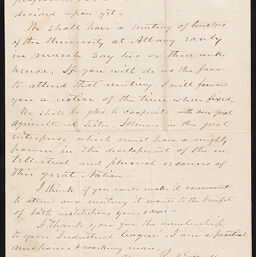 decided upon yet.
We shall have a meeting of trustees
of the University at Albany early
in March say two or three weeks
hence. If you will do us the favor
to attend that meeting, I will forward
you a notice of the time when fixed.
We shall be glad to cooperate with our great
Agricultural Sister Illinois in this great
enterprise which must have a mighty
power in the development of the in-
tellectual and physical resources of
this great Nation.
I think if you could make it convenient
to attend our meeting it would be to the benefit
of both institutions yours & ours.
I thank you for the membership
to your Industrial league. I am a practical
mechanic & working man.